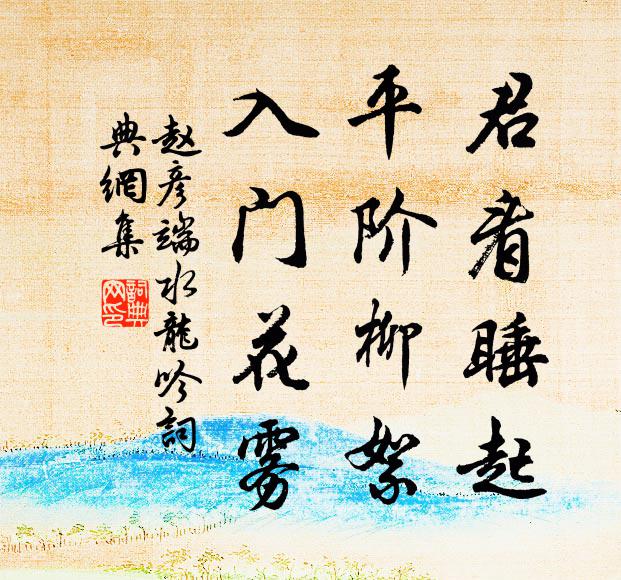 君看睡起
平阶柳絮
入门花雾
赵彦端水龙吟词
典網集
詞典网印